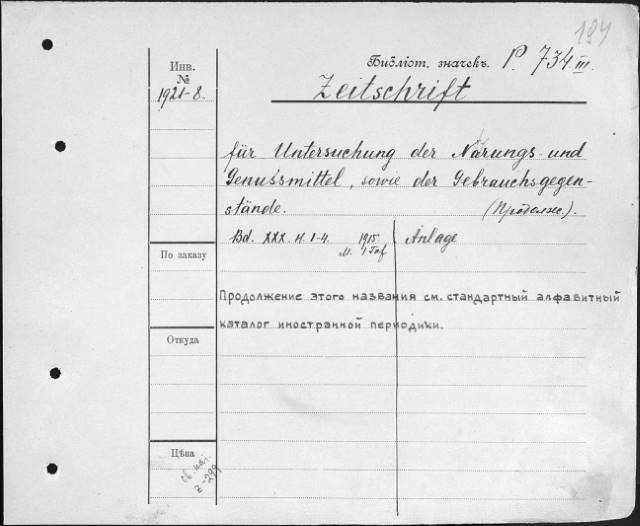 194
Библіот. значекъ P. 734 III.
Инв.
№
1921-8.
Zeitschrift
für Untersuchung der Nahrungs- und
Genussmittel, sowie der Gebrauchsgegen-
stände. (Продолж.).
Bd. XXX. H. 1-4. 1915. Anlage
м. 1 Taf
По заказу
Продолжение этого названия см. стандартный алфавитный
каталог иностранной периодики.
Откуда
Цѣва
Z-299